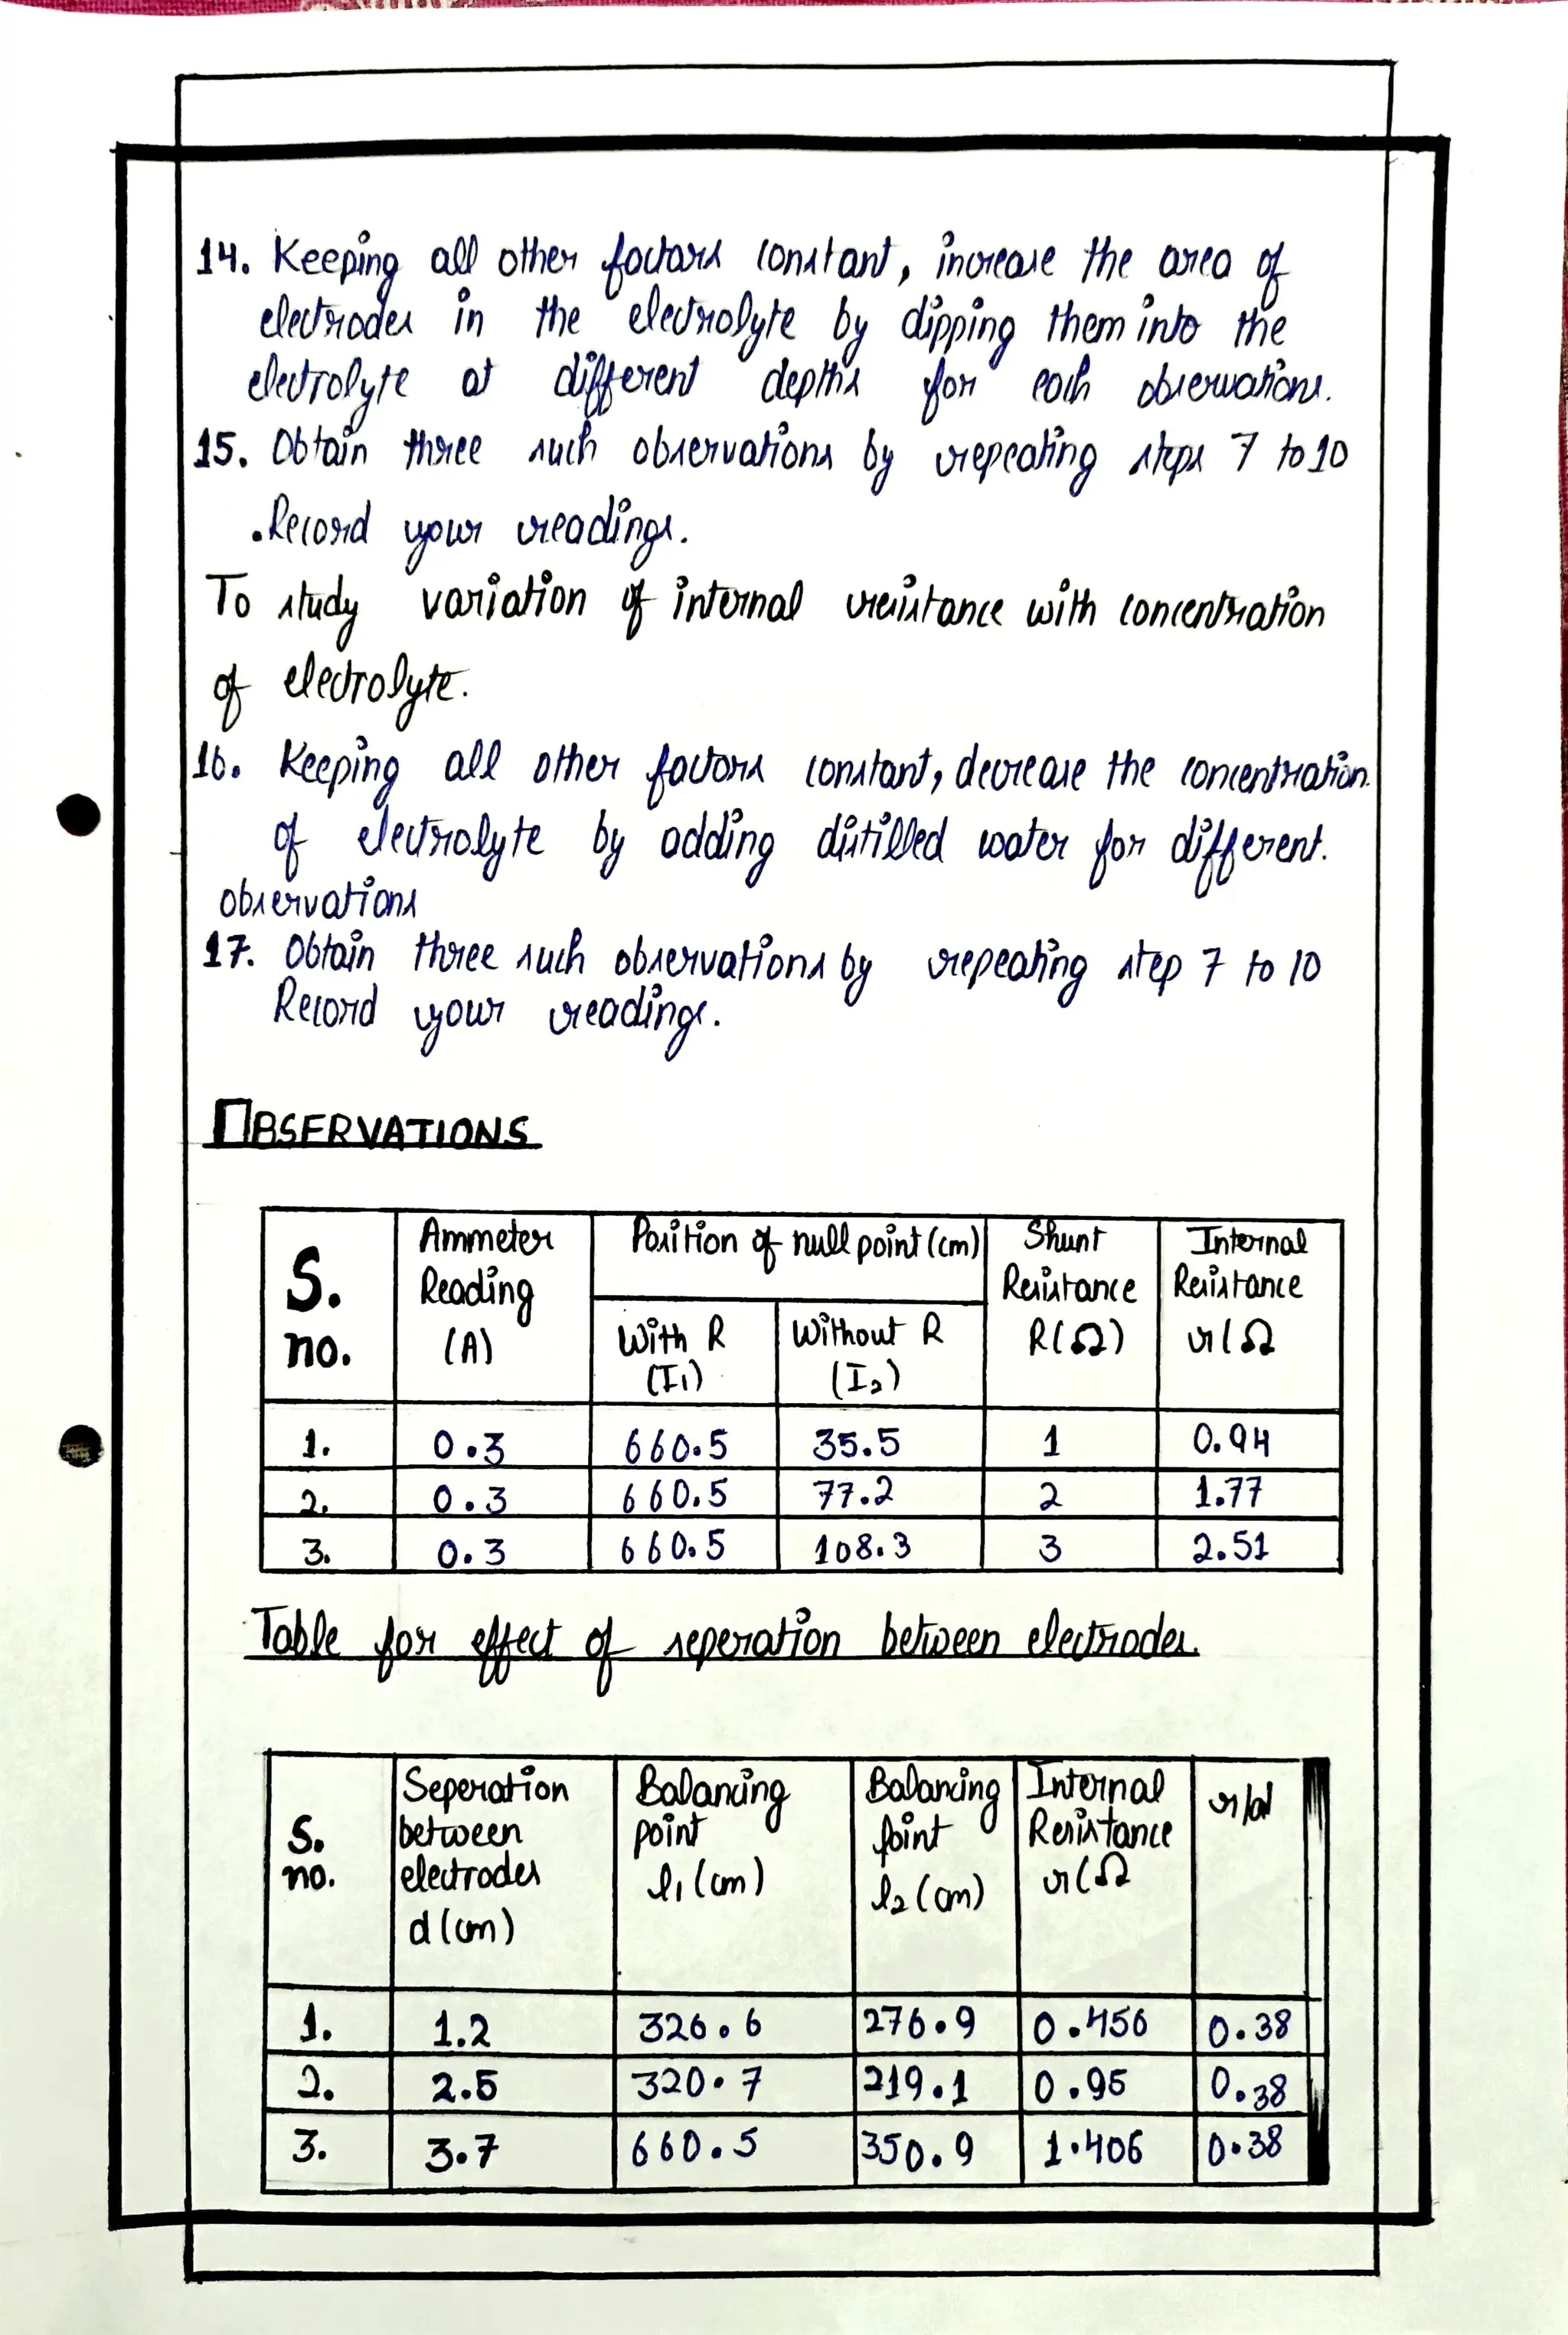 14. Keeping all other factors constant, increase the area of
electrodes in the electrolyte by dipping them into the
electrolyte at different depths for each observations.
15. Obtain three such observations by repeating steps 7 to 10
.Record your readings.
To study variation of internal resistance with concentration
of electrolyte.
16. Keeping all other factors constant, decrease the concentration.
of electrolyte by adding distilled water for different.
observations
17. Obtain three such observations by repeating step 7 to 10
Record your readings.
OBSERVATIONS
S. no. Ammeter Reading (A) Position of null point (cm) Shunt Resistance R(Ω) Internal Resistance r(Ω
With R (I1) Without R (I2)
1. 0.3 660.5 35.5 1 0.94
2. 0.3 660.5 77.2 2 1.77
3. 0.3 660.5 108.3 3 2.51
Table for effect of seperation between electrodes.
S. no. Seperation between electrodes d(cm) Balancing point l1(cm) Balancing point l2(cm) Internal Resistance r(Ω r/d
1. 1.2 326.6 276.9 0.456 0.38
2. 2.5 320.7 219.1 0.95 0.38
3. 3.7 660.5 350.9 1.406 0.38